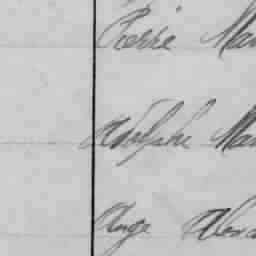 Pierre Mar
Adolphe Mar
Ange Alexa